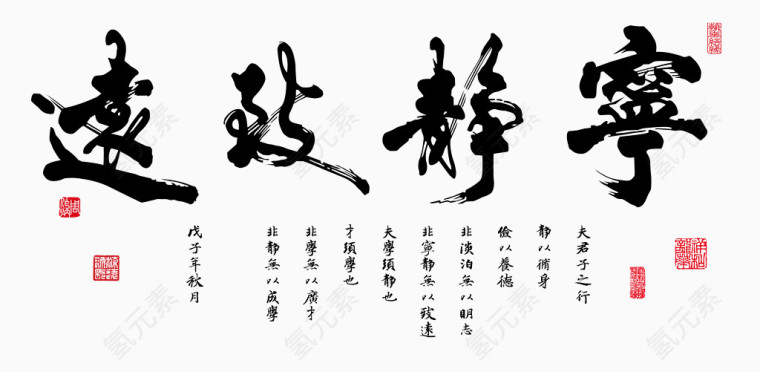 寧靜致遠
夫君子之行
靜以脩身
儉以養德
非淡泊無以明志
非寧靜無以致遠
夫學須靜也
才須學也
非學無以廣才
非靜無以成學
戊子年秋月
氢元素